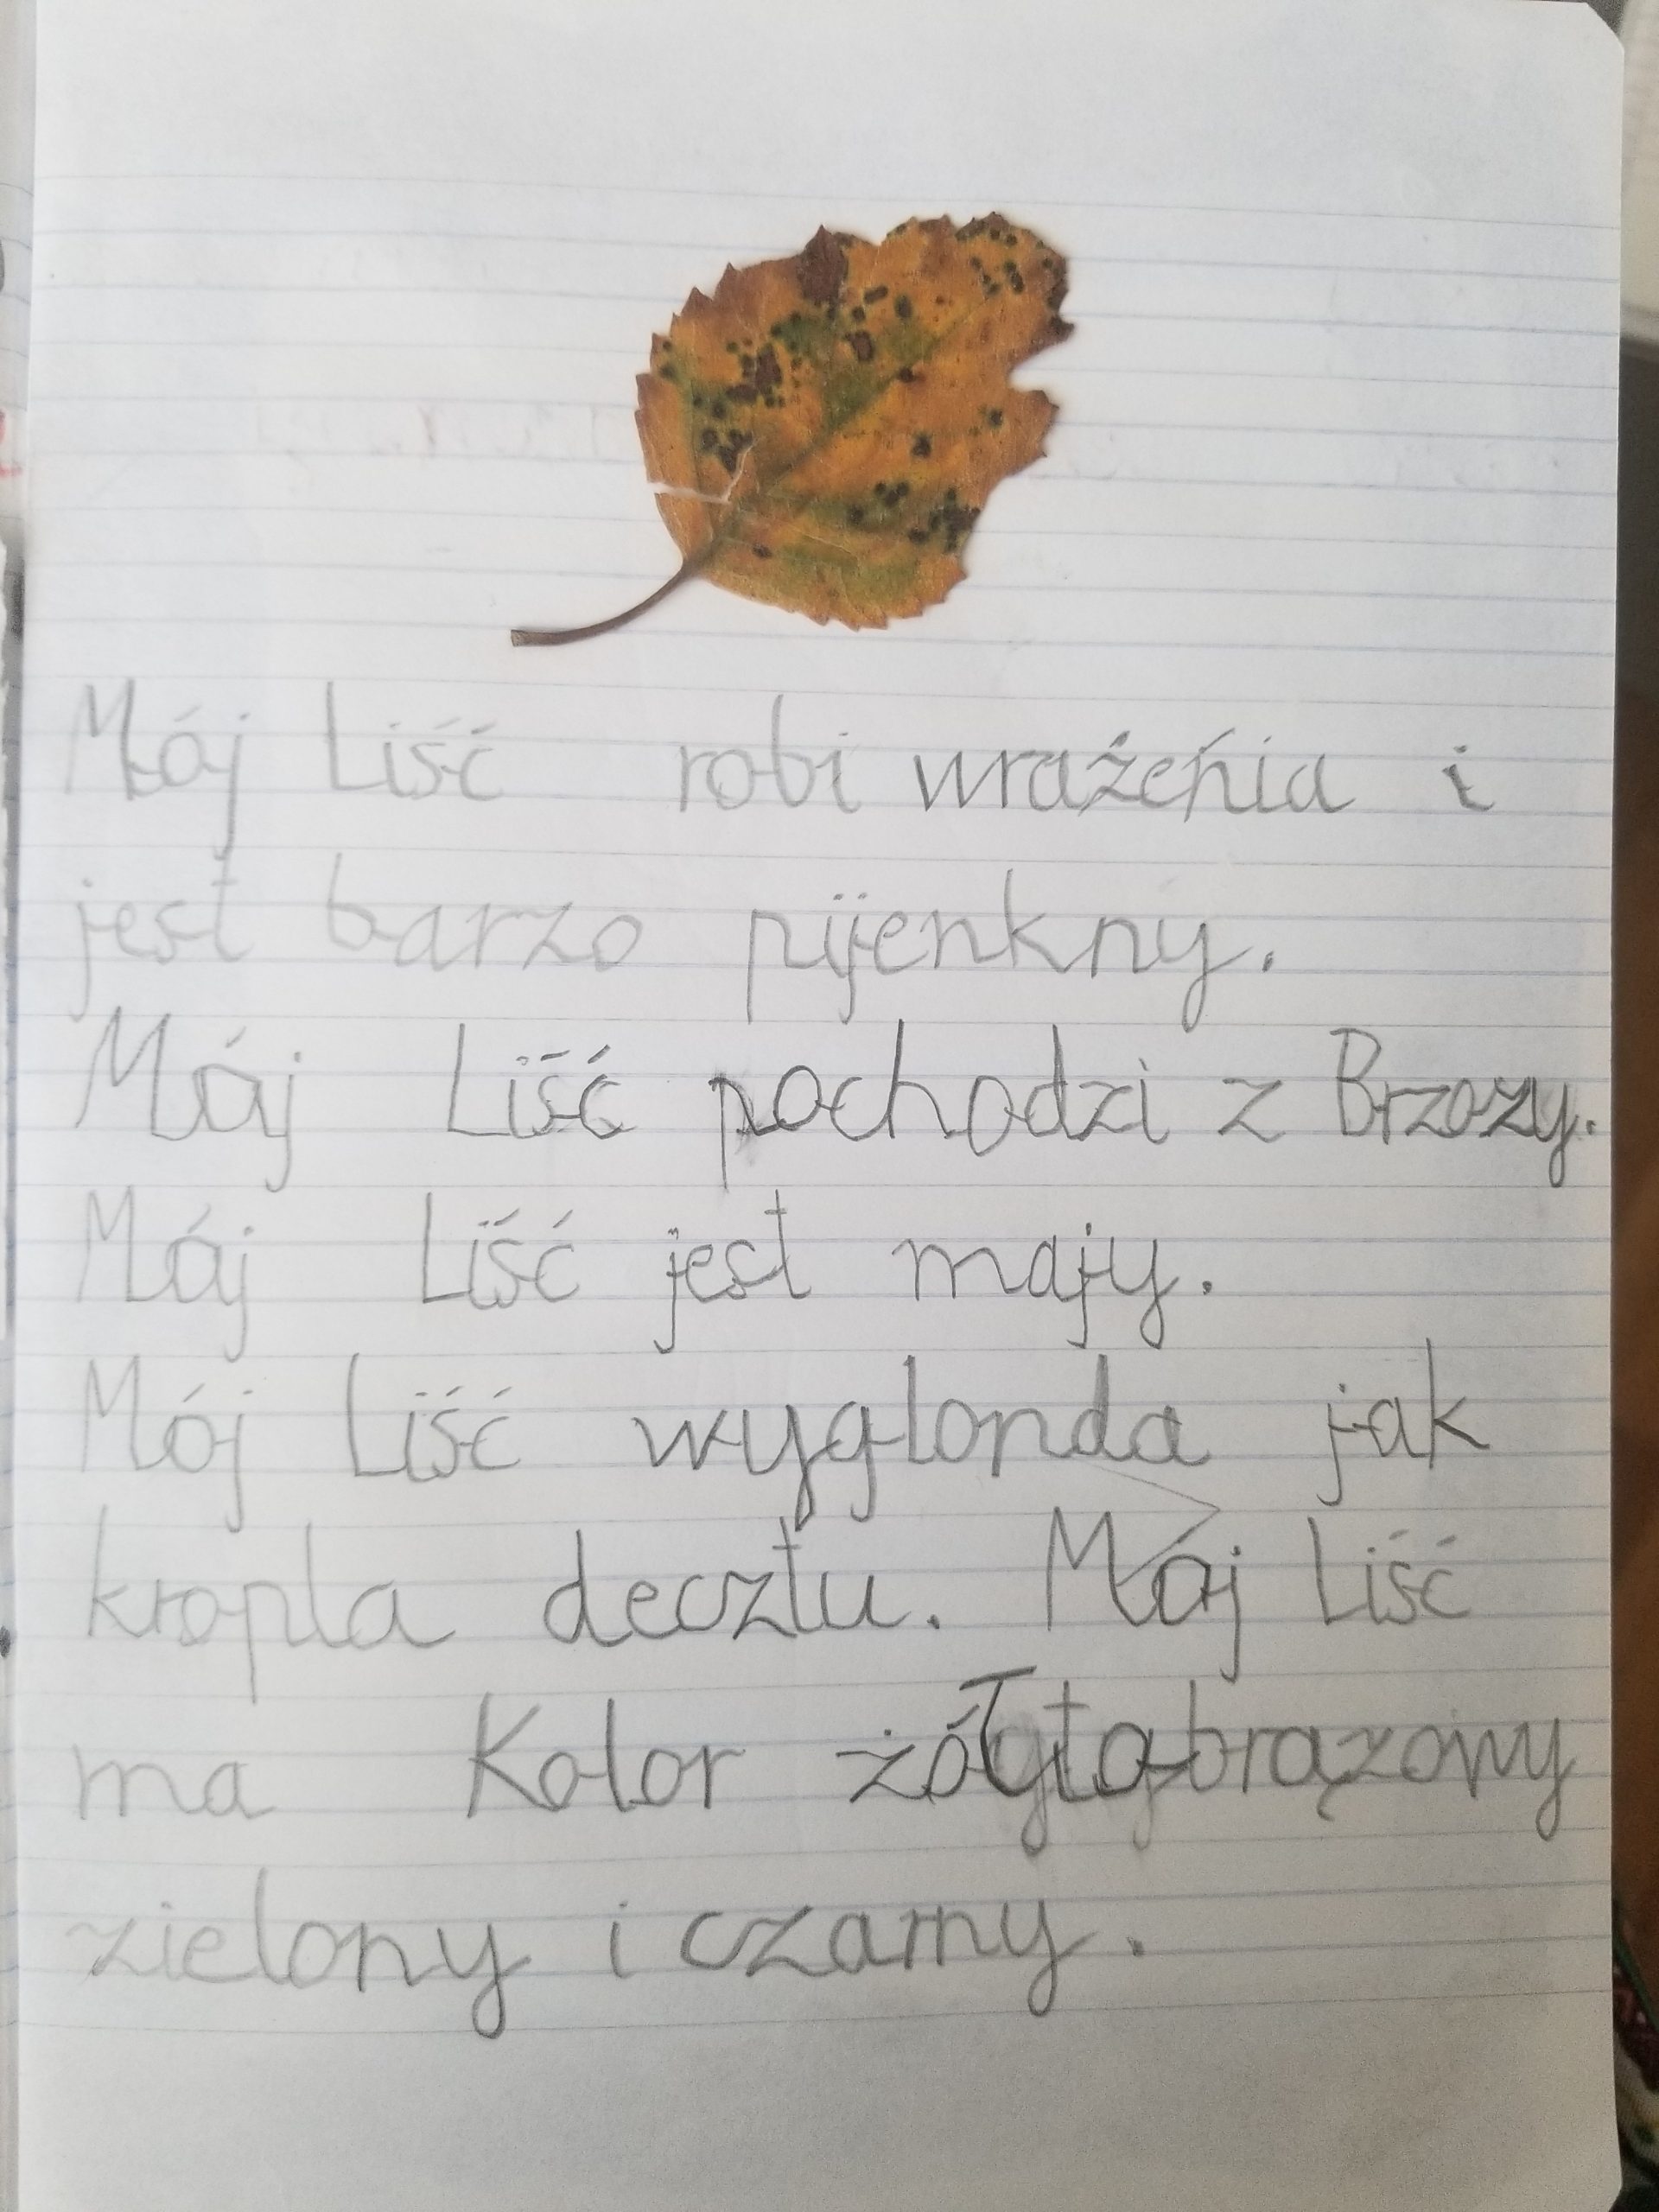 Mój Liść robi wrażeńia i
jest barzo pijenkny.
Mój Liść pochodzi z Brzozy.
Mój Liść jest majy.
Mój Liść wyglonda jak
kropla decztu. Mój Liść
ma Kolor brązowy
zielony i czarny.